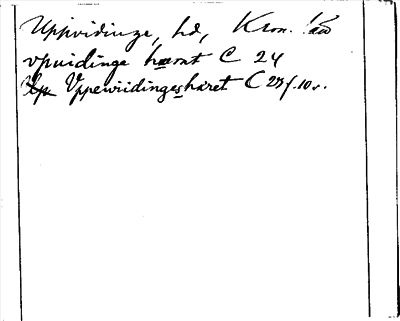 Uppvidinge, hd, Kron. län
vpuidinge hæret C 24
Vppewiidingesharet C 23 f. 10 v.